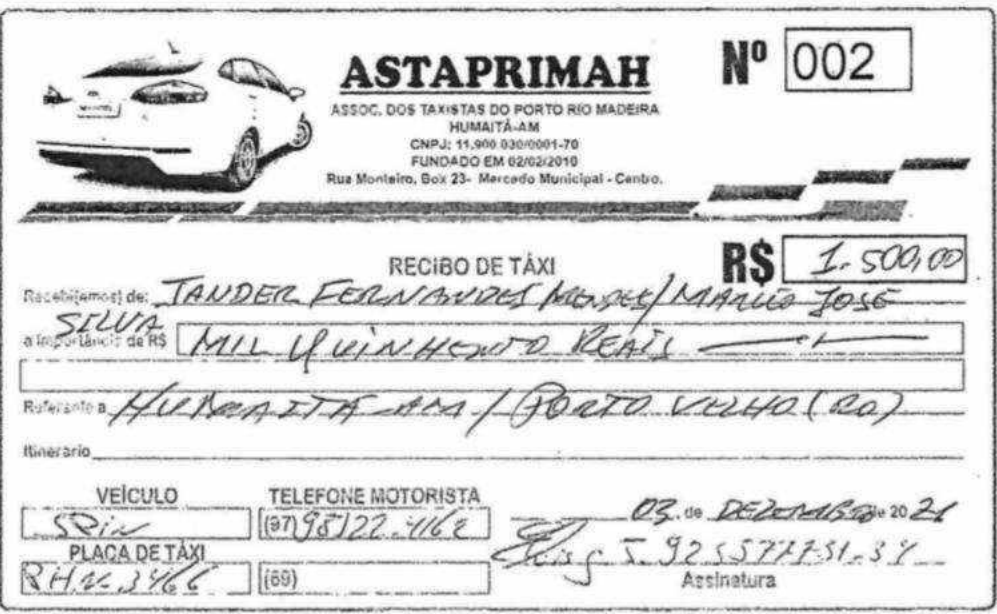 ASTAPRIMAH
Nº 002
ASSOC. DOS TAXISTAS DO PORTO RIO MADEIRA
HUMAITÁ-AM
CNPJ: 11.900.030/0001-70
FUNDADO EM 02/02/2010
Rua Monteiro, Box 23- Mercado Municipal - Centro.
RECIBO DE TÁXI
R$ 1.500,00
Recebi(emos) de: TANDER FERNANDES MENDES/MARIO JOSE
SILVA
a importância de R$ MIL QUINHENTO REAIS
Referente a HUMAITÁ-AM / PORTO VELHO (RO)
Itinerario
VEÍCULO TELEFONE MOTORISTA
SPIN (97) 98122-4162 03 de DEZEMBRO de 2021
PLACA DE TÁXI
(69)
Assinatura